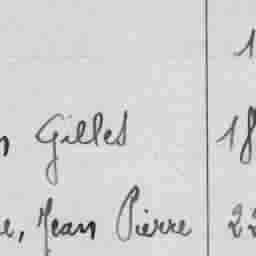 1
Gilles 18
Jean Pierre 22